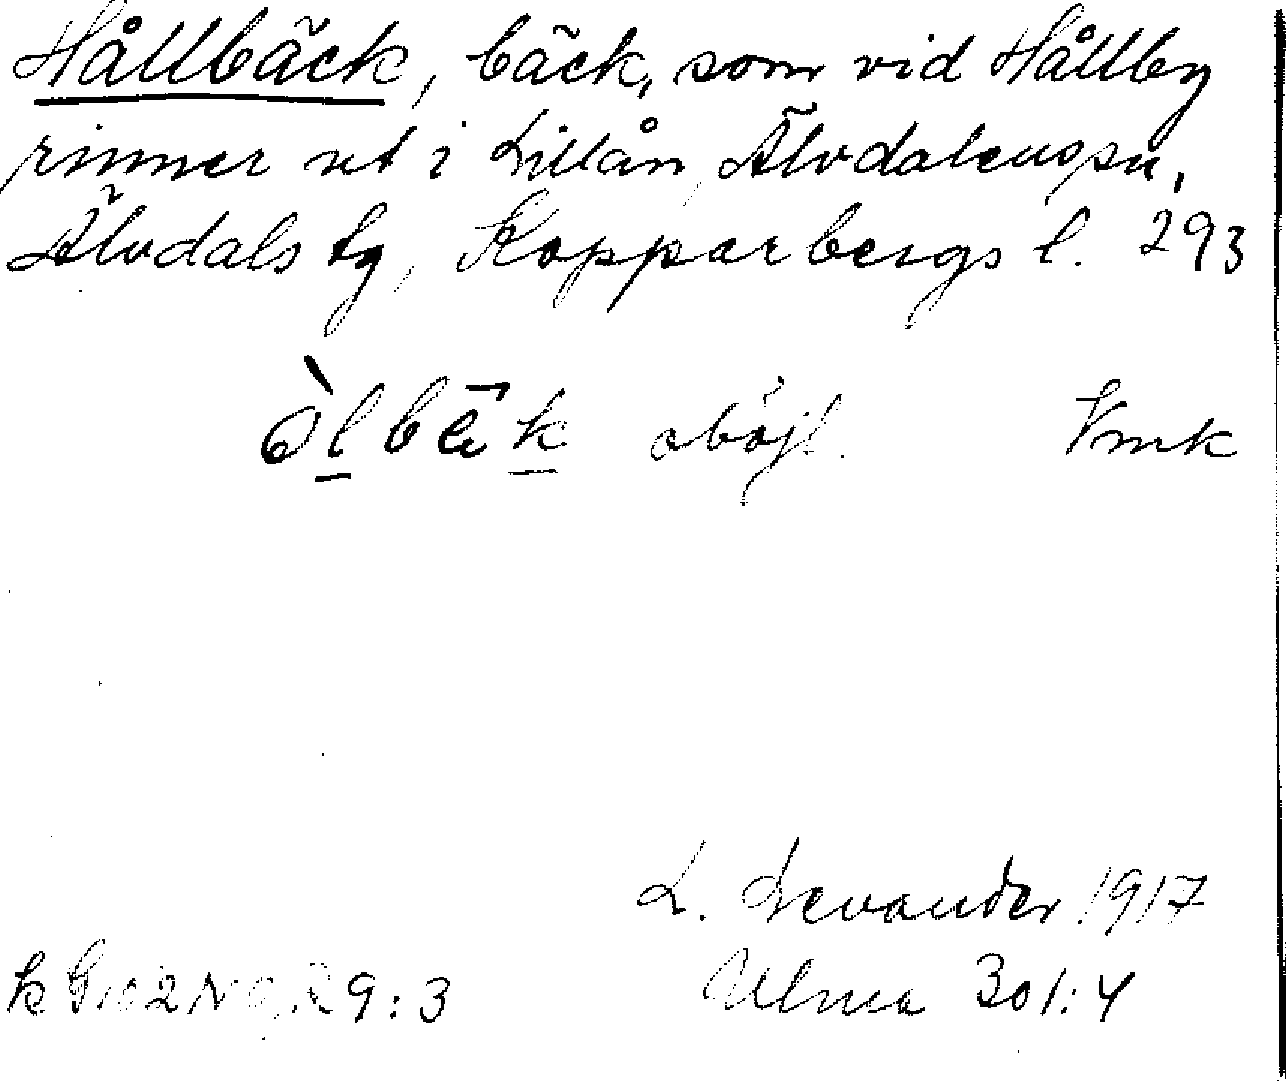 Hållbäck, bäck, som vid Hållby
rinner ut i Lillån, Älvdalens sn,
Älvdals tg, Kopparbergs l. 293
oböjl. Vmk
L. Levander 1917
9:3 Ulma 301:4